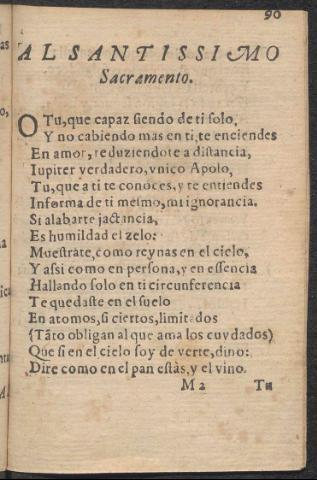 90
AL SANTISSIMO
Sacramento.
O Tu, que capaz siendo de ti solo,
Y no cabiendo mas en ti, te enciendes
En amor, reduziendote a distancia,
Iupiter verdadero, vnico Apolo,
Tu, que a ti te conoces, y te entiendes
Informa de ti mesmo, mi ignorancia.
Si alabarte jactancia,
Es humildad el zelo:
Muestrate, como reynas en el cielo,
Y assi como en persona, y en essencia
Hallando solo en ti circunferencia
Te quedaste en el suelo
En atomos, si ciertos, limitados
(Tãto obligan al que ama los cuydados)
Que si en el cielo soy de verte, dino:
Dire como en el pan estàs, y el vino.
M 2 Tu